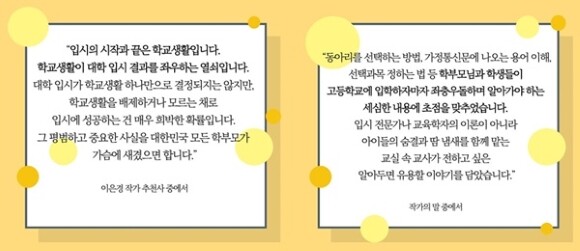 "입시의 시작과 끝은 학교생활입니다.
학교생활이 대학 입시 결과를 좌우하는 열쇠입니다.
대학 입시가 학교생활 하나만으로 결정되지는 않지만,
학교생활을 배제하거나 모르는 채로
입시에 성공하는 건 매우 희박한 확률입니다.
그 평범하고 중요한 사실을 대한민국 모든 학부모가
가슴에 새겼으면 합니다."
이은경 작가 추천사 중에서
"동아리를 선택하는 방법, 가정통신문에 나오는 용어 이해,
선택과목 정하는 법 등 학부모님과 학생들이
고등학교에 입학하자마자 좌충우돌하며 알아가야 하는
세심한 내용에 초점을 맞추었습니다.
입시 전문가나 교육학자의 이론이 아니라
아이들의 숨결과 땀 냄새를 함께 맡는
교실 속 교사가 전하고 싶은
알아두면 유용할 이야기를 담았습니다."
작가의 말 중에서